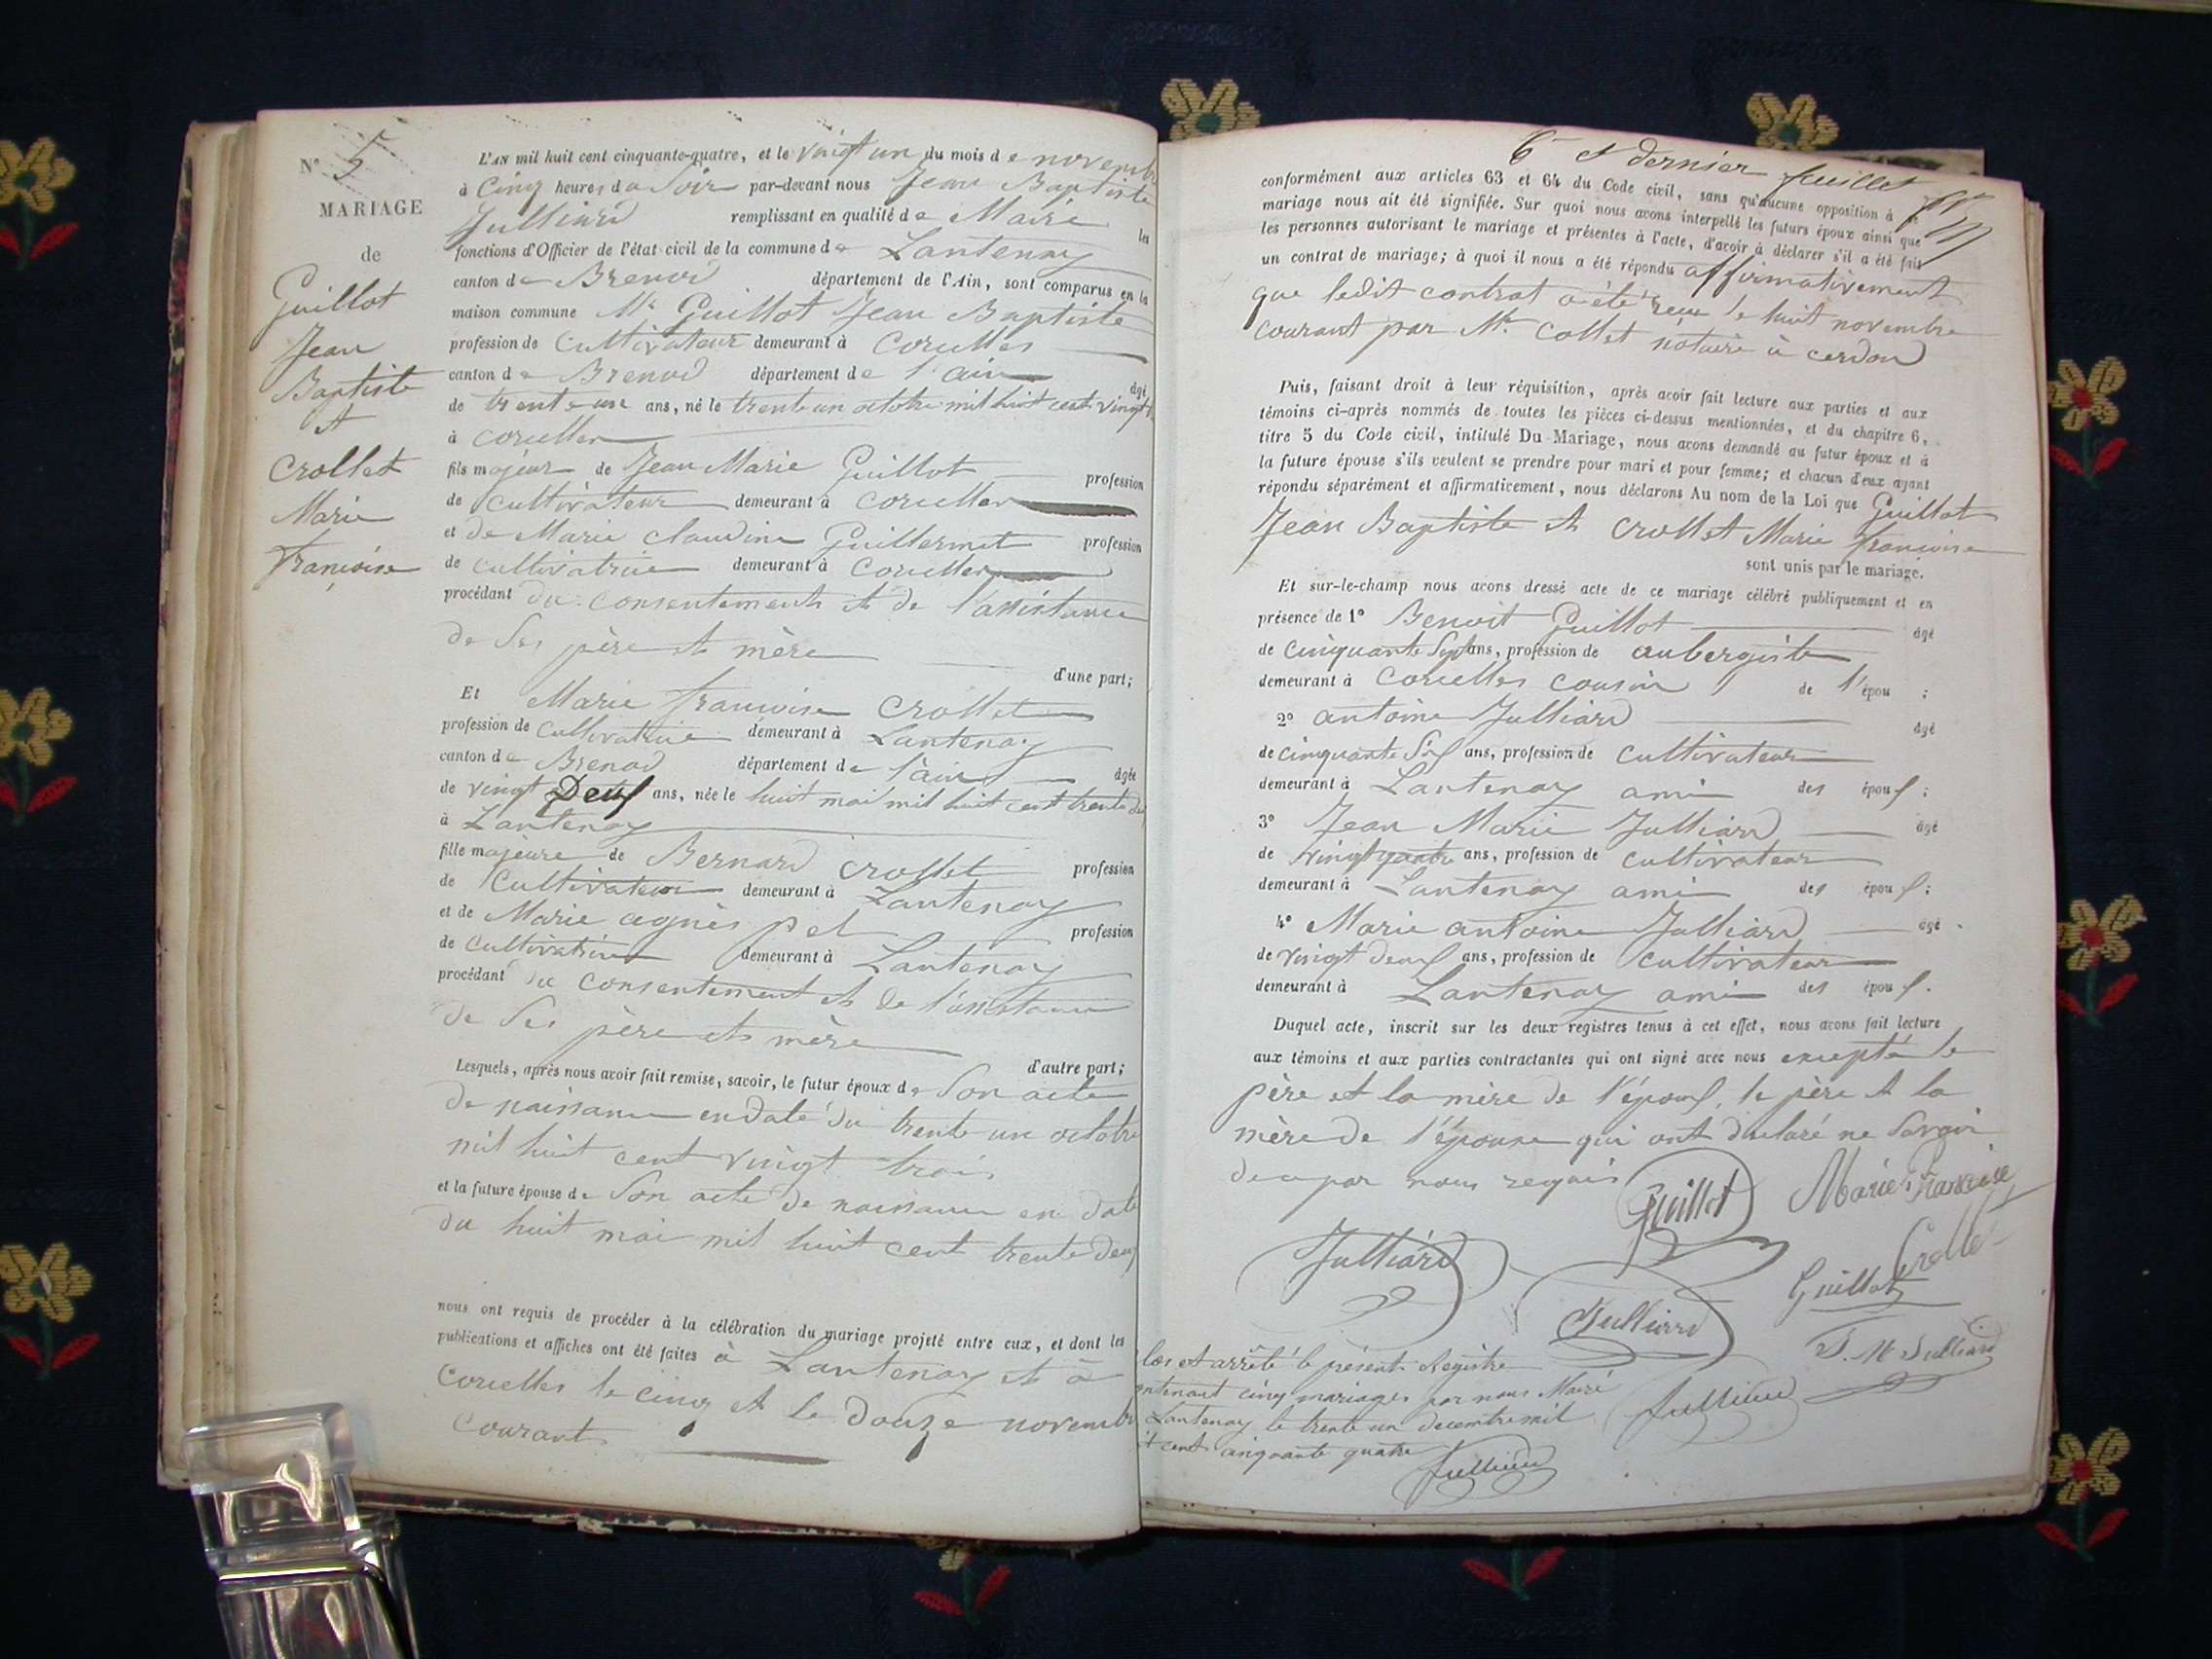 N° 5
MARIAGE
de
Guillot
Jean
Baptiste
et
Crollet
Marie
françoise
L'AN mil huit cent cinquante-quatre, et le vingt un du mois de novembre
à Cinq heures du Soir par-devant nous Jean Baptiste
Julliard remplissant en qualité de Maire les
fonctions d'Officier de l'état civil de la commune de Lantenay
canton de Brenod département de l'Ain, sont comparus en la
maison commune Mr Guillot Jean Baptiste
profession de Cultivateur demeurant à Corcelles
canton de Brenod département de l'ain âgé
de trente un ans, né le trente un octobre mil huit cent vingt
à Corcelles
fils majeur de Jean Marie Guillot profession
de cultivateur demeurant à Corcelles
et de Marie claudine Guillermet profession
de cultivatrice demeurant à Corcelles
procédant du consentement et de l'assistance
de Ses père et mère
d'une part;
Et Marie françoise Crollet
profession de Cultivatrice demeurant à Lantenay
canton de Brenod département de l'ain âgée
de vingt Deux ans, née le huit mai mil huit cent trente deux
à Lantenay
fille majeure de Bernard Crollet profession
de Cultivateur demeurant à Lantenay
et de Marie agnès profession
de Cultivatrice demeurant à Lantenay
procédant du consentement et de l'assistance
de Ses père et mère
d'autre part;
Lesquels, après nous avoir fait remise, savoir, le futur époux de Son acte
de naissance en date du trente un octobre
mil huit cent vingt trois
et la future épouse de Son acte de naissance en date
du huit mai mil huit cent trente deux
nous ont requis de procéder à la célébration du mariage projeté entre eux, et dont les
publications et affiches ont été faites à Lantenay et à
Corcelles le cinq et le douze novembre
Courant
6e et dernier feuillet
conformément aux articles 63 et 64 du Code civil, sans qu'aucune opposition à ce
mariage nous ait été signifiée. Sur quoi nous avons interpellé les futurs époux ainsi que
les personnes autorisant le mariage et présentes à l'acte, d'avoir à déclarer s'il a été fait
un contrat de mariage; à quoi il nous a été répondu affirmativement
que ledit contrat a été reçu le huit novembre
courant par Me Collet notaire à cerdon
Puis, faisant droit à leur réquisition, après avoir fait lecture aux parties et aux
témoins ci-après nommés de toutes les pièces ci-dessus mentionnées, et du chapitre 6,
titre 5 du Code civil, intitulé Du Mariage, nous avons demandé au futur époux et à
la future épouse s'ils veulent se prendre pour mari et pour femme; et chacun d'eux ayant
répondu séparément et affirmativement, nous déclarons Au nom de la Loi que Guillot
Jean Baptiste et Crollet Marie françoise
sont unis par le mariage.
Et sur-le-champ nous avons dressé acte de ce mariage célébré publiquement et en
présence de 1° Benoit Guillot âgé
de Cinquante Sept ans, profession de aubergiste
demeurant à Corcelles cousin de l'épou ;
2° antoine Julliard âgé
de cinquante Six ans, profession de cultivateur
demeurant à Lantenay ami des époux ;
3° Jean Marie Julliard âgé
de vingt quatre ans, profession de cultivateur
demeurant à Lantenay ami des époux ;
4° Marie antoine Julliard âgé
de vingt deux ans, profession de cultivateur
demeurant à Lantenay ami des époux.
Duquel acte, inscrit sur les deux registres tenus à cet effet, nous avons fait lecture
aux témoins et aux parties contractantes qui ont signé avec nous excepté le
père et la mère de l'époux, le père et la
mère de l'épouse qui ont déclaré ne Savoir
de ce par nous requis
Guillot Marie Françoise
Crollet
Julliard
Guillot
Julliard
J. M Julliard
Julliard
los et arrêté le présent Registre
ntenant cinq mariages par nous Maire
Lantenay le trente un decembre mil
it cent cinquante quatre
Julliard